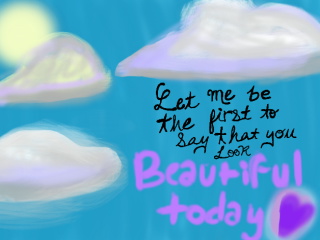 Let me be
the first to
Say that you
Look
Beautiful
today